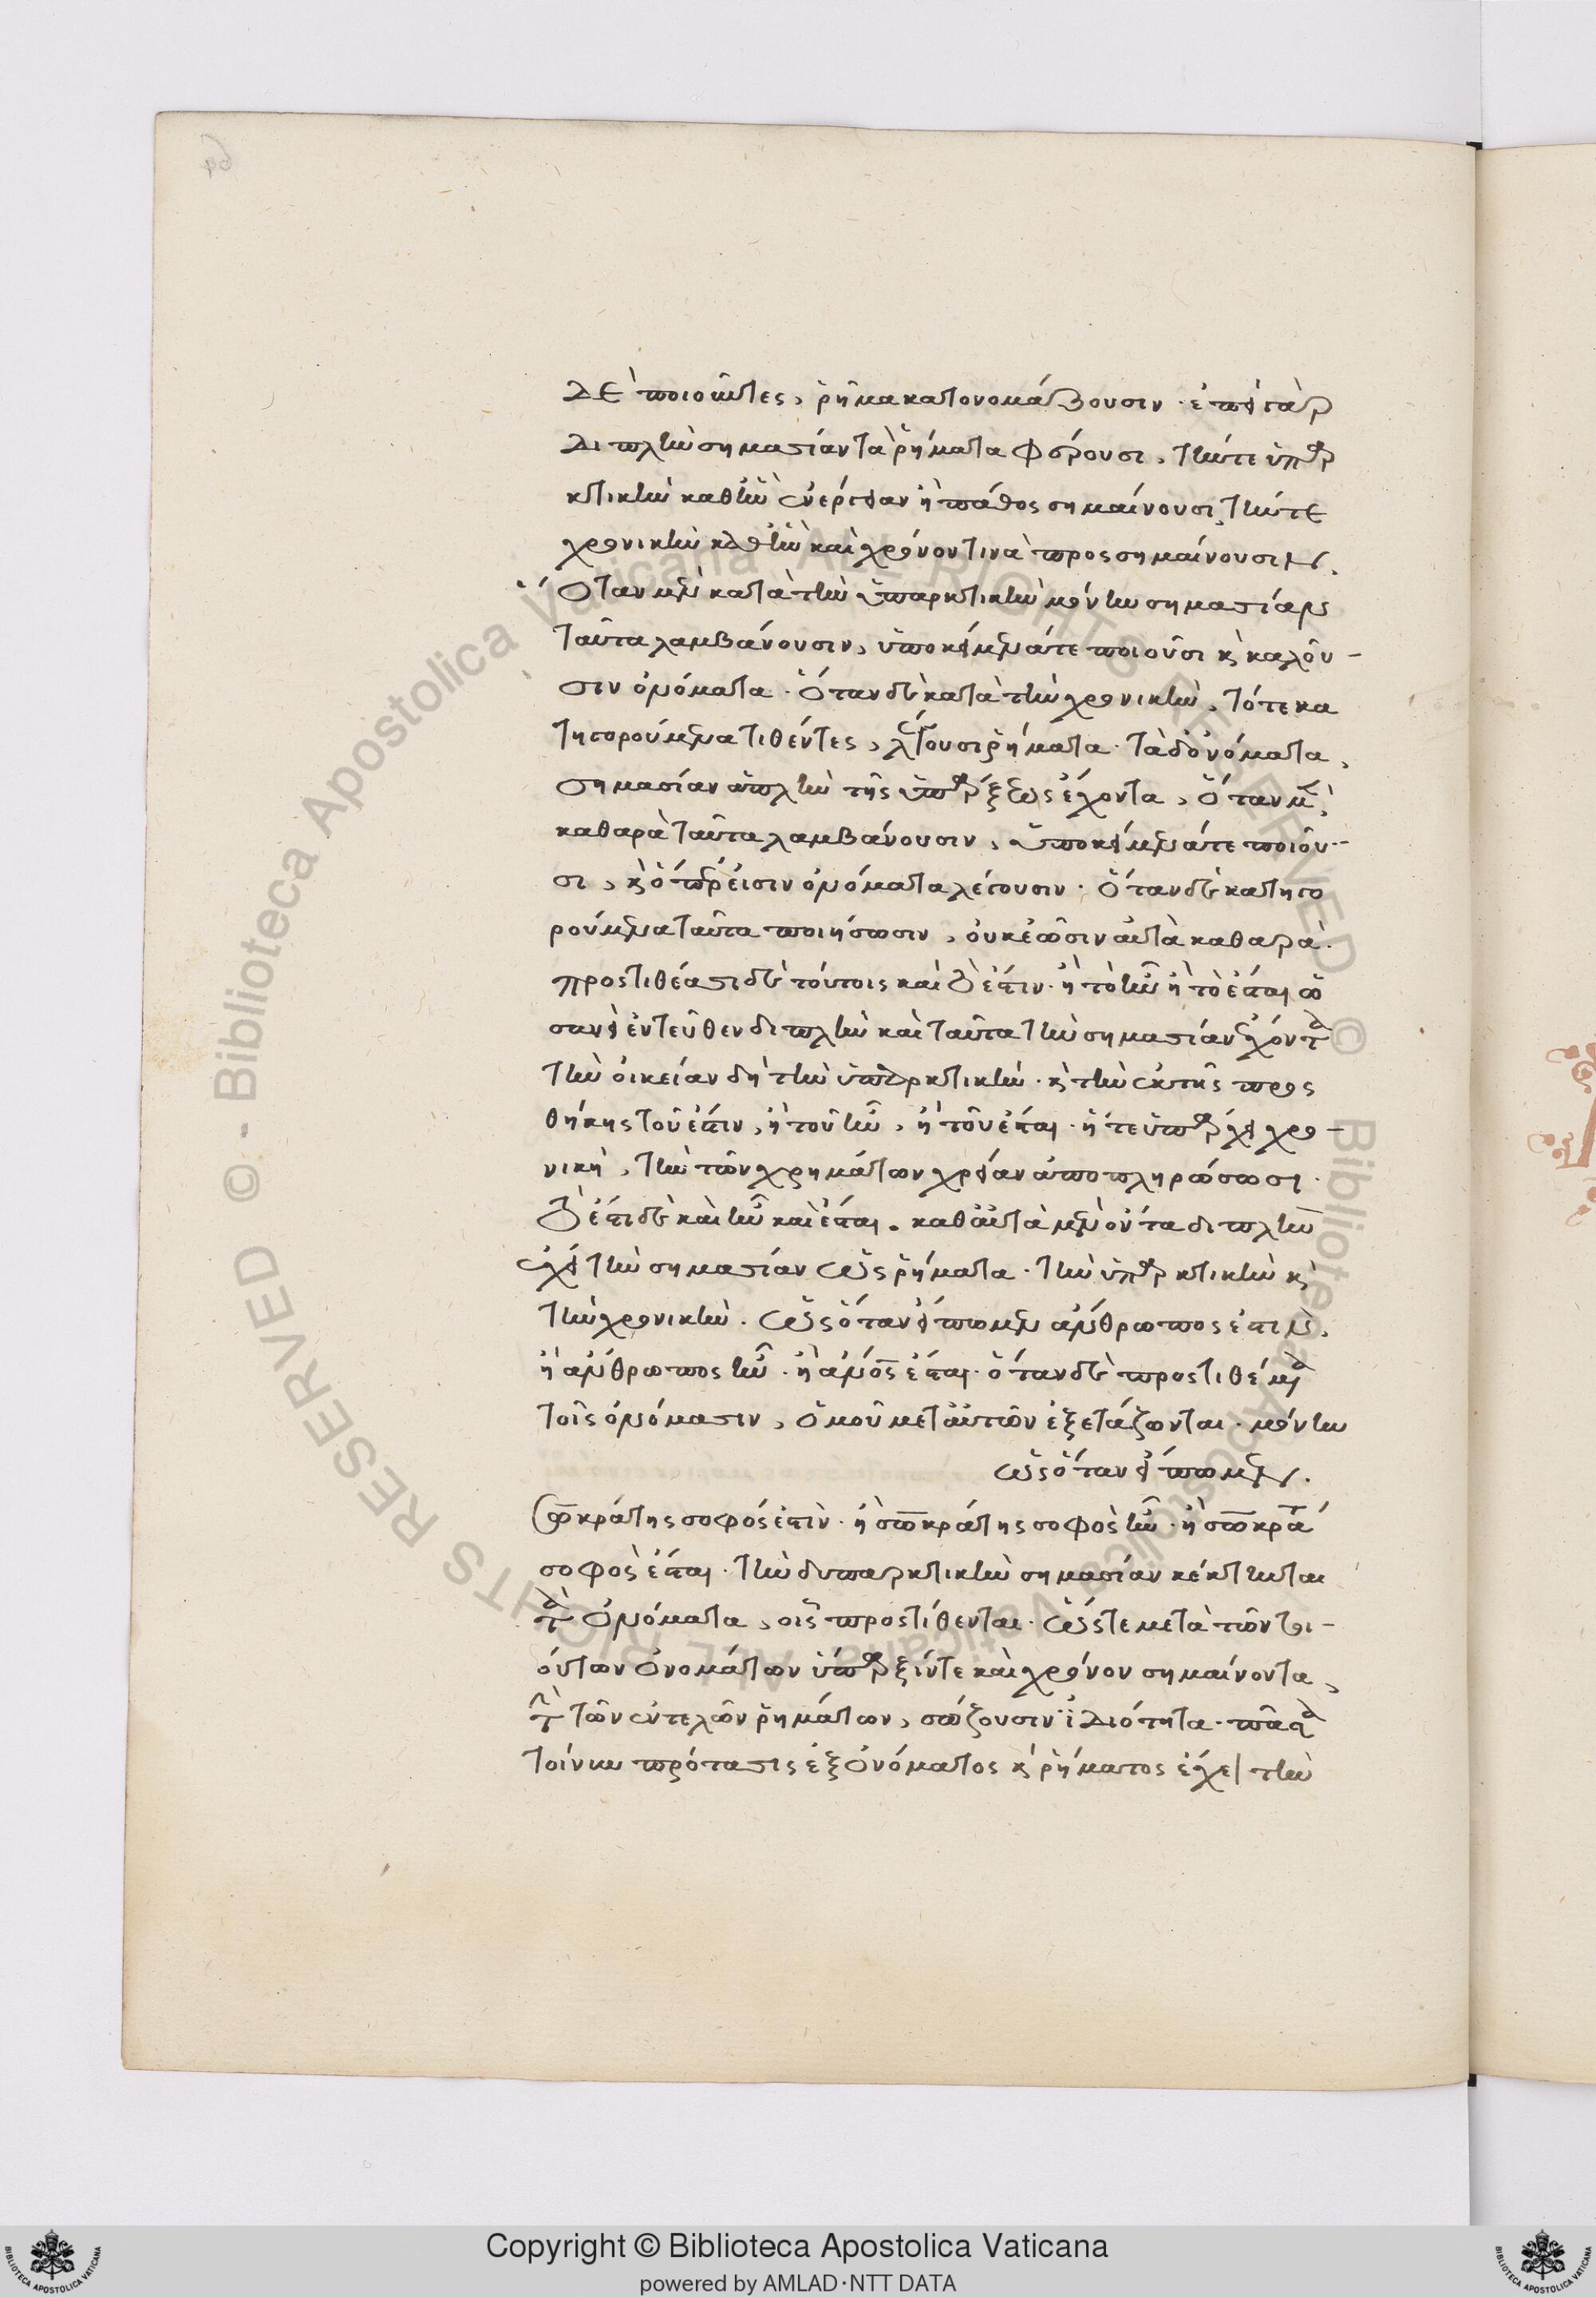 δὲ ποιοῦντες, ῥῆμα κατονομάζουσιν· ἐπεὶ γὰρ
διπλὴν σημασίαν τὰ ῥήματα φέρουσι, τήν τε ὑπαρ
κτικὴν καθ' ἣν ἐνέργειαν ἢ πάθος σημαίνουσι, τήν τε
χρονικὴν καθ' ἣν καὶ χρόνον τινὰ προςσημαίνουσιν.
Ὅταν μὲν κατὰ τὴν ὑπαρκτικὴν μόνην σημασίαν
ταῦτα λαμβάνουσιν, ὑποκείμενά τε ποιοῦσι κ καλοῦ-
σιν ὀνόματα. Ὅταν δὲ κατὰ τὴν χρονικὴν, τότε κα
τηγορούμενα τιθέντες, λέγουσι ῥήματα· τὰ δ' ὀνόματα,
σημασίαν ἁπλὴν τῆς ὑπάρξεως ἔχοντα, ὅταν μὲν
καθαρὰ ταῦτα λαμβάνουσιν, ὑποκείμενά τε ποιοῦ-
σι, κ ὅπερ εἰσιν ὀνόματα λέγουσιν. Ὅταν δὲ κατηγο
ρούμενα ταῦτα ποιήσωσιν, οὐκ ἐῶσιν αὐτὰ καθαρὰ.
προςτιθέασι δὲ τούτοις καὶ τὸ ἐστιν· ἢ τὸ ἦν ἢ τὸ ἔσται ὡ
σανεὶ ἐντεῦθεν διπλὴν καὶ ταῦτα τὴν σημασίαν ἔχοντα
τὴν οἰκείαν δὴ τὴν ὑπαρκτικὴν· κ τὴν ἐκ τῆς προς
θήκης τοῦ ἐστιν, ἢ τοῦ ἦν, ἢ τοῦ ἔσται· ἥ τε ὑπάρχει χρο-
νικὴ, τὴν τῶν χρημάτων χρείαν ἀποπληρώσωσι.
Τὸ ἐστι δὲ καὶ ἦν καὶ ἔσται. καθ' αὑτὰ μὲν ὄντα διπλὴν
ἔχει τὴν σημασίαν ὡς ῥήματα· τὴν ὑπαρκτικὴν κ
τὴν χρονικὴν. ὡς ὅταν εἴπωμεν ἄνθρωπος ἐστιν,
ἢ ἄνθρωπος ἦν· ἢ ἄνος ἔσται· ὅταν δὲ προςτιθέμενα
τοῖς ὀνόμασιν, ὁμοῦ μετ' αὐτῶν ἐξετάζωνται· μόνην
ὡς ὅταν εἴπωμεν.
Σωκράτης σοφός ἐστιν· ἢ σωκράτης σοφὸς ἦν· ἢ σωκρά
σοφὸς ἔσται· τὴν δ' ὑπαρκτικὴν σημασίαν κέκτηται
τὰ ὀνόματα, οἷς προςτίθενται· ὥςτε μετὰ τῶν τοι-
ούτων ὀνομάτων ὕπαρξίν τε καὶ χρόνον σημαίνοντα,
τὴν τῶν ἐντελῶν ῥημάτων, σώζουσιν ἰδιότητα· πᾶσα
τοίνυν πρότασις ἐξ ὀνόματος κ ῥήματος ἔχει τὴν
Copyright © Biblioteca Apostolica Vaticana
powered by AMLAD·NTT DATA